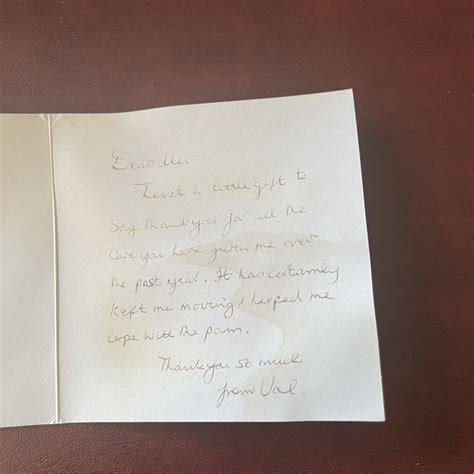 Dear Mei
Just a little gift to
Say thankyou for all the
Care you have given me over
the past year. It has certainly
kept me moving & helped me
cope with the pain.
Thankyou so much
from Val.